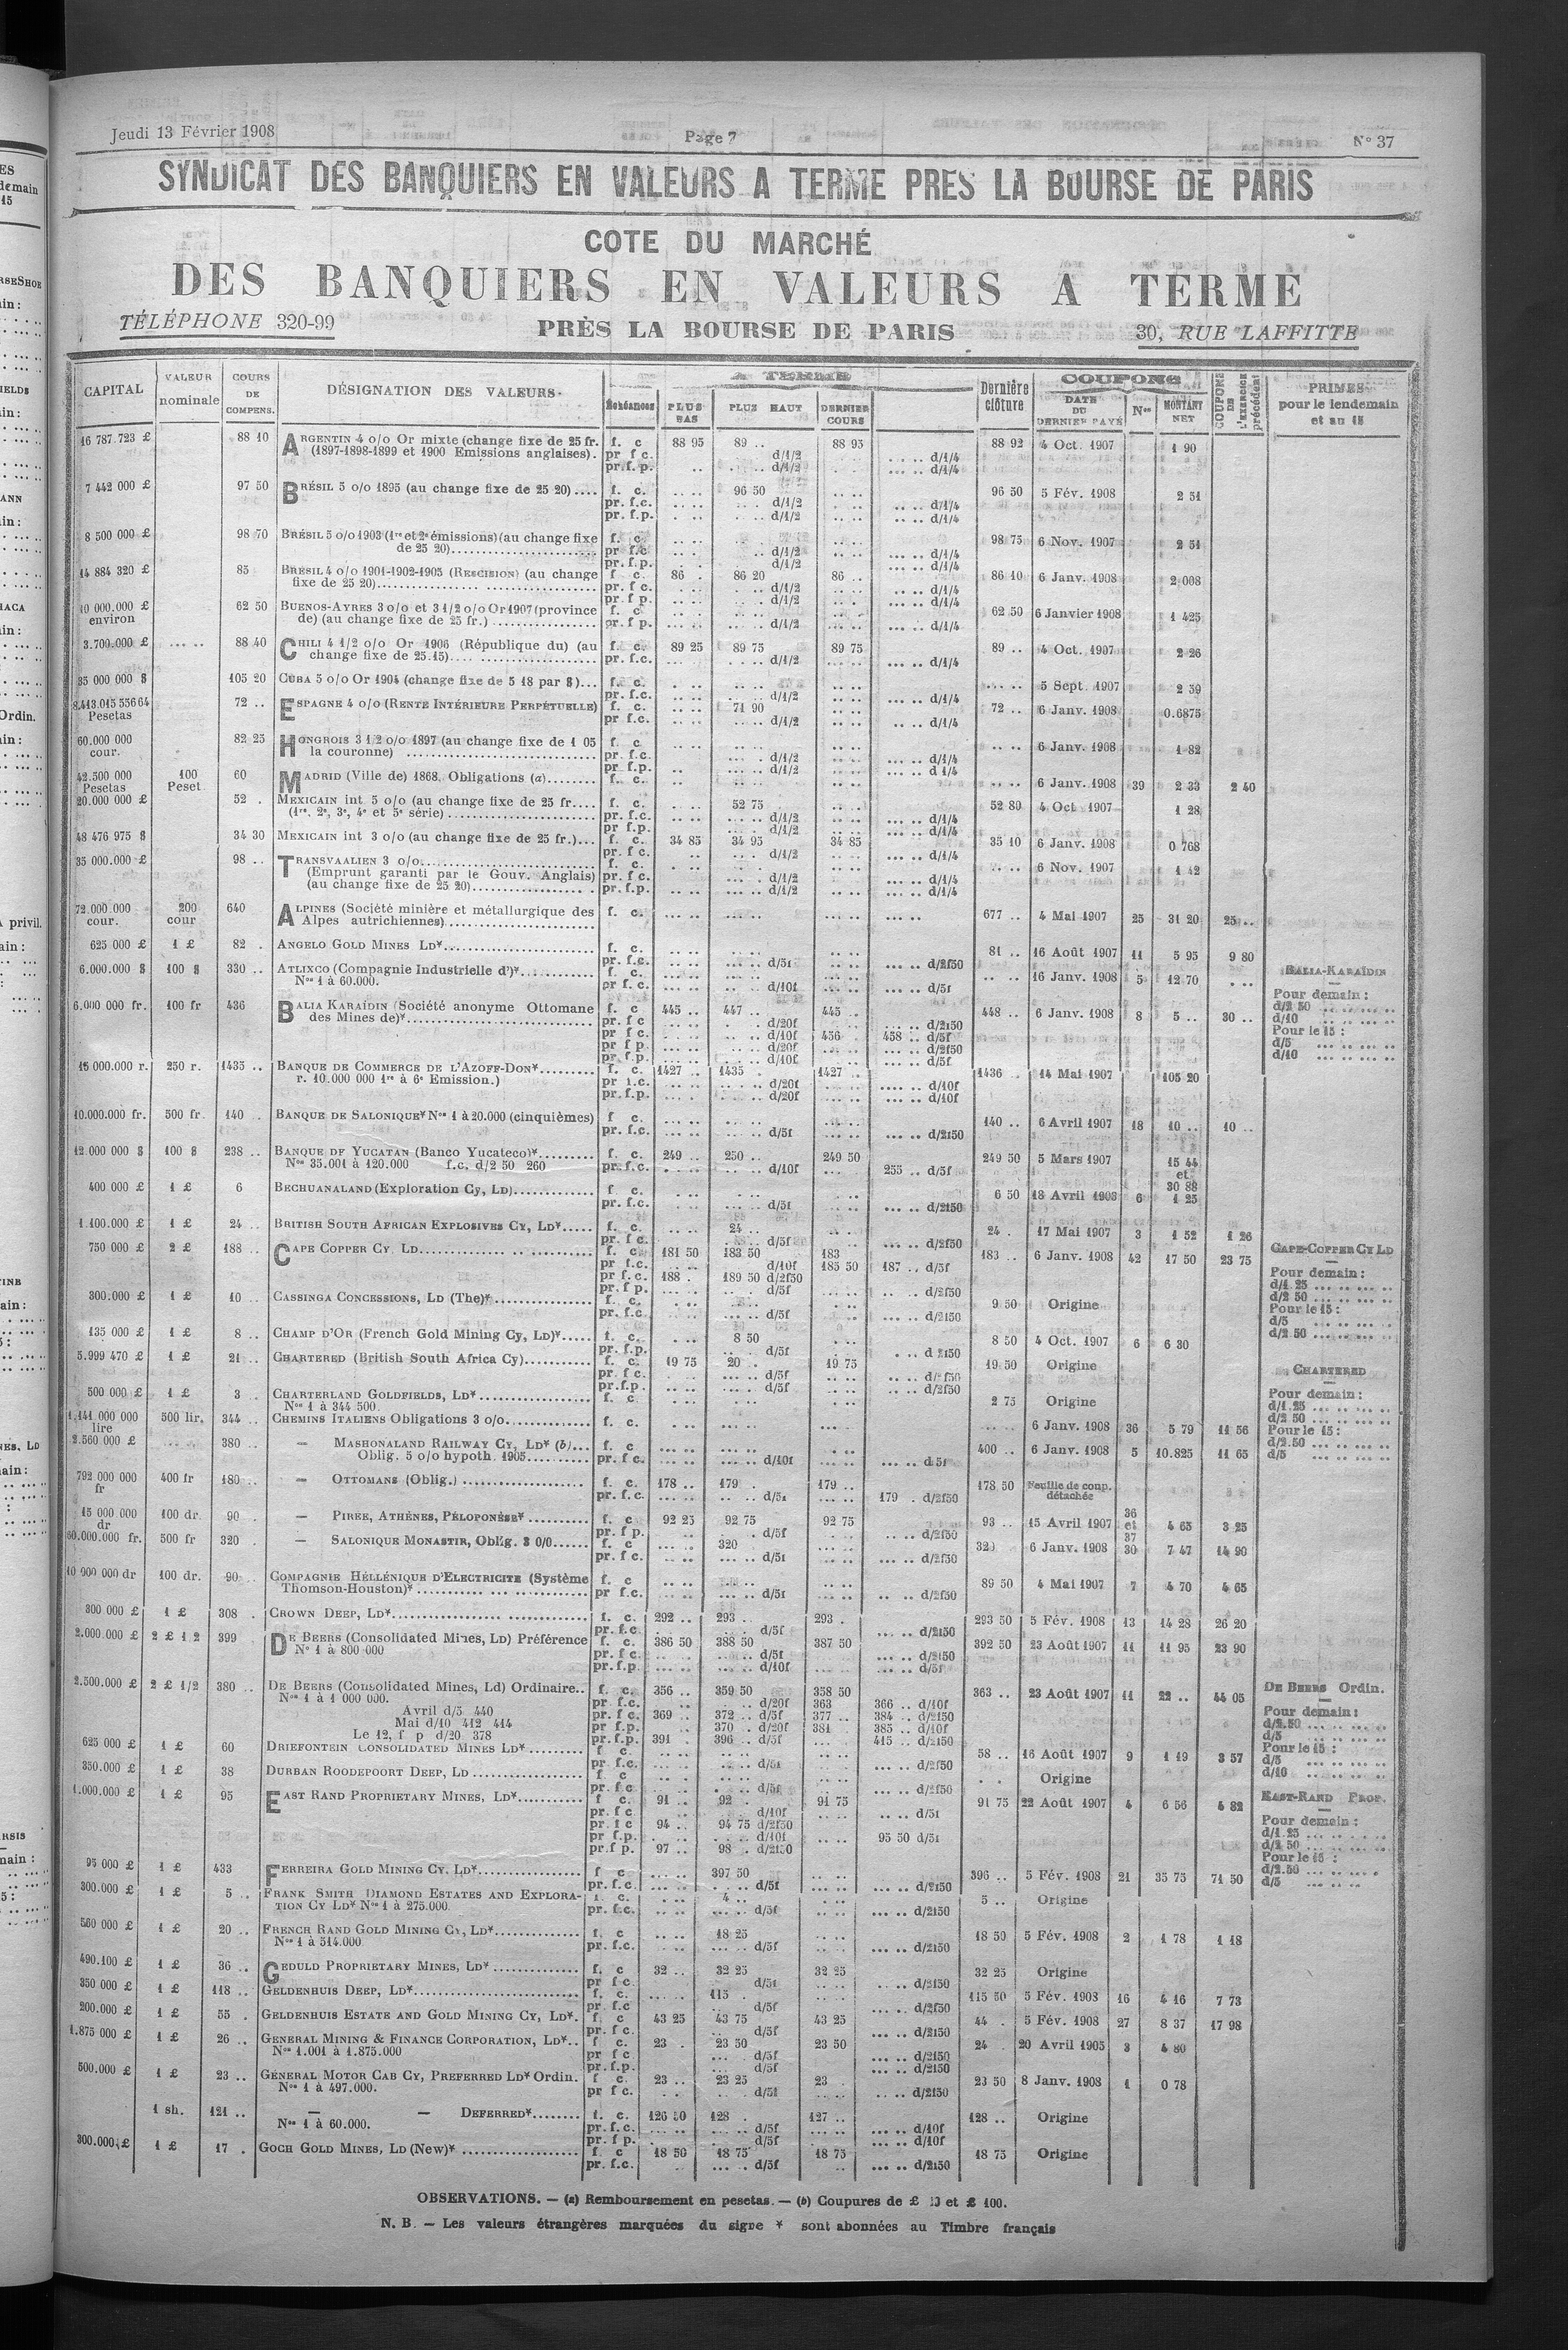 Jeudi 13 Février 1908 Page 7 N° 37
SYNDICAT DES BANQUIERS EN VALEURS A TERME PRES LA BOURSE DE PARIS
COTE DU MARCHÉ
DES BANQUIERS EN VALEURS A TERME
TÉLÉPHONE 320-99 PRÈS LA BOURSE DE PARIS 30, RUE LAFFITTE
CAPITAL VALEUR nominale COURS DE COMPENS. DÉSIGNATION DES VALEURS. A TERME Échéances PLUS BAS PLUS HAUT DERNIER COURS Dernière clôture COUPONS DATE DU DERNIER PAYÉ Nos MONTANT NET COUPONS DE L'EXERCICE précédent PRIMES pour le lendemain et au 15
16 787.723 £ 88 10 ARGENTIN 4 o/o Or mixte (change fixe de 25 fr. f. c 88 95 89 .. 88 95 88 92 4 Oct. 1907 1 90
(1897-1898-1899 et 1900 Emissions anglaises). pr f c. d/1/2 d/1/4
pr.f.p. d/1/2 d/1/4
7 442 000 £ 97 50 BRÉSIL 5 o/o 1895 (au change fixe de 25 20).... f. c. 96 50 96 50 5 Fév. 1908 2 51
pr. f.c. d/1/2 d/1/4
pr. f.p. d/1/2 d/1/4
8 500 000 £ 98 70 BRÉSIL 5 o/o 1903 (1re et 2e émissions) (au change fixe f. c. 98 75 6 Nov. 1907 2 51
de 25 20) pr f.c d/1/2 d/1/4
pr. f.p. d/1/2 d/1/4
14 884 320 £ 85 BRESIL 4 o/o 1901-1902-1905 (RESCISION) (au change f c. 86 . 86 20 86 .. 86 10 6 Janv. 1908 2 008
fixe de 25 20) pr. f c. d/1/2 d/1/4
pr. f p. d/1/2 d/1/4
10 000.000 £ environ 62 50 BUENOS-AYRES 3 o/o et 3 1/2 o/o Or 1907 (province f. c 62 50 6 Janvier 1908 1 425
de) (au change fixe de 25 fr.) pr. f p. d/1/2 d/1/4
3.700.000 £ 88 40 CHILI 4 1/2 o/o Or 1906 (République du) (au f. c. 89 25 89 75 89 75 89 .. 4 Oct. 1907 2 26
change fixe de 25.15) pr. f.c. d/1/2 d/1/4
35 000 000 $ 105 20 CUBA 5 o/o Or 1904 (change fixe de 5 18 par $)... f. c. 5 Sept. 1907 2 59
pr. f.c. d/1/2 d/1/4
Pesetas 72 .. ESPAGNE 4 o/o (RENTE INTÉRIEURE PERPÉTUELLE) f. c. 71 90 72 .. 6 Janv. 1908 0.6875
pr f.c. d/1/2 d/1/4
60.000 000 cour. 82 25 HONGROIS 3 1 2 o/o 1897 (au change fixe de 1 05 f. c 6 Janv. 1908 1 82
la couronne) pr. f.c. d/1/2 d/1/4
pr. f.p. d/1/2 d 1/4
42.500 000 Pesetas 100 Peset 60 MADRID (Ville de) 1868. Obligations (a) f. c. 6 Janv. 1908 39 2 33 2 40
20.000 000 £ 52 . MEXICAIN int 5 o/o (au change fixe de 25 fr.... f. c. 52 75 52 80 4 Oct 1907 1 28
(1re, 2e, 3e, 4e et 5e série) pr. f.c. d/1/2 d/1/4
pr f.p. d/1/2 d/1/4
48 476 975 $ 34 30 MEXICAIN int 3 o/o (au change fixe de 25 fr.)... f. c. 34 85 34 95 34 85 35 10 6 Janv. 1908 0 768
pr. f c. d/1/2 d/1/4
35 000.000 £ 98 .. TRANSVAALIEN 3 o/o f. c. 6 Nov. 1907 1 42
(Emprunt garanti par le Gouv. Anglais) pr. f c. d/1/2 d/1/4
(au change fixe de 25 20) pr. f.p. d/1/2 d/1/4
72.000 000 cour. 200 cour 640 ALPINES (Société minière et métallurgique des f. c. 677 .. 4 Mai 1907 25 31 20 25 ..
Alpes autrichiennes)
625 000 £ 1 £ 82 . ANGELO GOLD MINES LD* f. c. 81 .. 16 Août 1907 11 5 95 9 80
pr. f.c. d/5f d/2f50
6.000.000 $ 100 $ 330 .. ATLIXCO (Compagnie Industrielle d')* f. c. 16 Janv. 1908 5 12 70
Nos 1 à 60.000. pr f. c. d/10f d/5f
6.000 000 fr. 100 fr 436 BALIA KARAÏDIN (Société anonyme Ottomane f. c 445 .. 447 .. 445 .. 448 .. 6 Janv. 1908 8 5 .. 30 ..
des Mines de)* pr. f c d/20f d/2f50
pr f c. d/10f 456 458 .. d/5f
pr f p. d/20f d/2f50
pr. f.p. d/10f d/5f
BALIA-KARAÏDIN
Pour demain :
d/2 50
d/10
Pour le 15 :
d/5
d/10
15 000.000 r. 250 r. 1435 .. BANQUE DE COMMERCE DE L'AZOFF-DON* f. c. 1427 .. 1435 . 1427 .. 1436 14 Mai 1907 105 20
r. 10.000 000 1re à 6e Emission.) pr f.c. d/20f d/10f
pr. f.p. d/20f d/10f
10.000.000 fr. 500 fr. 140 . BANQUE DE SALONIQUE* Nos 1 à 20.000 (cinquièmes) f c. 140 .. 6 Avril 1907 18 10 .. 10 ..
pr. f.c. d/5f d/2f50
12.000 000 $ 100 $ 238 .. BANQUE DE YUCATAN (Banco Yucateco)* f. c. 249 .. 250 .. 249 50 249 50 5 Mars 1907 15 44
Nos 35.001 à 120.000 f.c. d/2 50 260 pr. f.c. d/10f 255 .. d/5f et 30 88
400 000 £ 1 £ 6 BECHUANALAND (Exploration Cy, LD) f c. 6 50 18 Avril 1903 6 1 25
pr. f.c. d/5f d/2f50
1.100.000 £ 1 £ 24 .. BRITISH SOUTH AFRICAN EXPLOSIVES CY, LD* f. c. 24 .. 24 . 17 Mai 1907 3 1 52 1 26
pr. f c. d/5f d/2f50
750 000 £ 2 £ 188 .. CAPE COPPER CY. LD f. c. 181 50 183 50 183 183 .. 6 Janv. 1908 42 17 50 23 75
pr. f.c. d/10f 185 50 187 .. d/5f
pr f. c. 188 . 189 50 d/2f50
pr f p. d/5f d/2f50
CAPE-COPPER CY LD
Pour demain :
d/1 25
d/2 50
Pour le 15 :
d/5
d/2.50
300.000 £ 1 £ 10 .. CASSINGA CONCESSIONS, LD (The)* f. c. 9 50 Origine
pr. f.c. d/5f d/2f50
135 000 £ 1 £ 8 .. CHAMP D'OR (French Gold Mining Cy, LD)* f. c. 8 50 8 50 4 Oct. 1907 6 6 30
pr. f.p. d/5f d 2f50
5.999 470 £ 1 £ 21 .. CHARTERED (British South Africa Cy) f. c. 19 75 20 .. 19 75 19 50 Origine
pr. f c. d/5f d/2f50
pr. f.p. d/5f d/2f50
CHARTERED
Pour demain :
d/1.25
d/2 50
Pour le 15 :
d/2.50
d/5
500 000 £ 1 £ 3 . CHARTERLAND GOLDFIELDS, LD* f. c 2 75 Origine
Nos 1 à 344 500.
1.141 000 000 lire 500 lir. 344 .. CHEMINS ITALIENS Obligations 3 o/o f. c. 6 Janv. 1908 36 5 79 11 56
2.560 000 £ 380 .. — MASHONALAND RAILWAY CY, LD* (b) f. c 400 .. 6 Janv. 1908 5 10.825 11 65
Oblig. 5 o/o hypoth. 1905 pr. f c. d/10f d 5f
792 000 000 fr 400 fr 180 .. — OTTOMANS (Oblig.) f. c. 178 .. 179 . 179 .. 178 50 Feuille de coup. détachée
pr. f.c. d/5f 179 . d/2f50
15 000 000 dr 100 dr. 90 . — PIREE, ATHÈNES, PÉLOPONÈSE* f. c 92 25 92 75 92 75 93 .. 15 Avril 1907 36 et 37 4 65 3 25
pr. f p. d/5f d/2f50
60.000.000 fr. 500 fr 320 . — SALONIQUE MONASTIR, Oblig. 3 0/0 f. c 320 6 Janv. 1908 30 7 47 14 90
pr. f c. d/5f d/2f50
10 000 000 dr 100 dr. 90 . COMPAGNIE HÉLLÉNIQUE D'ELECTRICITE (Système f. c 89 50 4 Mai 1907 7 4 70 4 65
Thomson-Houston)* pr f.c. d/5f d/2f50
300 000 £ 1 £ 308 . CROWN DEEP, LD* f. c. 292 .. 293 .. 293 . 293 50 5 Fév. 1908 13 14 28 26 20
pr. f.c. d/5f d/2f50
2.000.000 £ 2 £ 1 2 399 DE BEERS (Consolidated Mines, LD) Préférence f. c. 386 50 388 50 387 50 392 50 23 Août 1907 11 11 95 23 90
N° 1 à 800 000 pr. f c. d/5f d/2f50
pr. f.p. d/10f d/5f
2.500.000 £ 2 £ 1/2 380 .. DE BEERS (Consolidated Mines, Ld) Ordinaire.. f. c. 356 .. 359 50 358 50 363 .. 23 Août 1907 11 22 .. 44 05
Nos 1 à 1 000 000. pr. f.c. d/20f 363 366 .. d/10f
Avril d/5 440 pr. f c 369 .. 372 .. d/5f 377 .. 384 .. d/2f50
Mai d/10 412 414 pr f.p. 370 .. d/20f 381 385 .. d/10f
Le 12, f p d/20 378 pr. f.p. 391 . 396 .. d/5f 415 .. d/2f50
DE BEERS Ordin.
Pour demain :
d/2.50
d/5
Pour le 15 :
d/5
d/10
625 000 £ 1 £ 60 DRIEFONTEIN CONSOLIDATED MINES LD* f c. 58 .. 16 Août 1907 9 1 19 3 57
pr. f.c. d/5f d/2f50
350.000 £ 1 £ 38 DURBAN ROODEPOORT DEEP, LD f c Origine
pr. f.c d/5f d/2f50
1.000.000 £ 1 £ 95 EAST RAND PROPRIETARY MINES, LD* f c. 91 .. 92 .. 91 75 91 75 22 Août 1907 4 6 56 4 82
pr. f c d/10f d/5f
pr. f c 94 .. 94 75 d/2f50
pr f.p. d/10f 95 50 d/5f
pr.f p. 97 .. 98 . d/2f50
EAST-RAND PROP.
Pour demain :
d/1.25
d/2.50
Pour le 15 :
d/2.50
d/5
95 000 £ 1 £ 433 FERREIRA GOLD MINING CY. LD* f c 397 50 396 .. 5 Fév. 1908 21 35 75 71 50
pr. f.c. d/5f d/2f50
300.000 £ 1 £ 5 .. FRANK SMITH DIAMOND ESTATES AND EXPLORA- f. c. 4 .. 5 .. Origine
TION CY LD* Nos 1 à 275.000. pr. f.c. d/5f d/2f50
560 000 £ 1 £ 20 .. FRENCH RAND GOLD MINING CY, LD* f. c 18 25 18 50 5 Fév. 1908 2 1 78 1 18
Nos 1 à 514.000 pr. f.c. d/5f d/2f50
490.100 £ 1 £ 36 .. GEDULD PROPRIETARY MINES, LD* f. c 32 .. 32 25 32 25 32 25 Origine
pr f c. d/5f d/2f50
350 000 £ 1 £ 118 .. GELDENHUIS DEEP, LD* f. c. 115 . 115 50 5 Fév. 1908 16 4 16 7 73
pr. f.c d/5f d/2f50
200.000 £ 1 £ 55 . GELDENHUIS ESTATE AND GOLD MINING CY, LD*. f. c 43 25 43 75 43 25 44 . 5 Fév. 1908 27 8 37 17 98
pr. f c. d/5f d/2f50
1.875 000 £ 1 £ 26 .. GENERAL MINING & FINANCE CORPORATION, LD*.. f c. 23 . 23 50 23 50 24 . 20 Avril 1905 3 4 80
Nos 1.001 à 1.875.000 pr f c d/5f d/2f50
pr. f.p. d/5f d/2f50
500.000 £ 1 £ 23 .. GENERAL MOTOR CAB CY, PREFERRED LD* Ordin. f c. 23 .. 23 25 23 . 23 50 8 Janv. 1908 1 0 78
Nos 1 à 497.000. pr f c. d/5f d/2f50
1 sh. 121 .. — — DEFERRED* f. c. 126 50 128 . 127 .. 128 .. Origine
Nos 1 à 60.000. pr. f.c. d/5f d/10f
pr. f p. d/5f d/10f
300.000 £ 1 £ 17 . GOCH GOLD MINES, LD (New)* f. c 18 50 18 75 18 75 18 75 Origine
pr. f.c. d/5f d/2f50
OBSERVATIONS. — (a) Remboursement en pesetas. — (b) Coupures de £ et £ 100.
N. B. — Les valeurs étrangères marquées du signe * sont abonnées au Timbre français